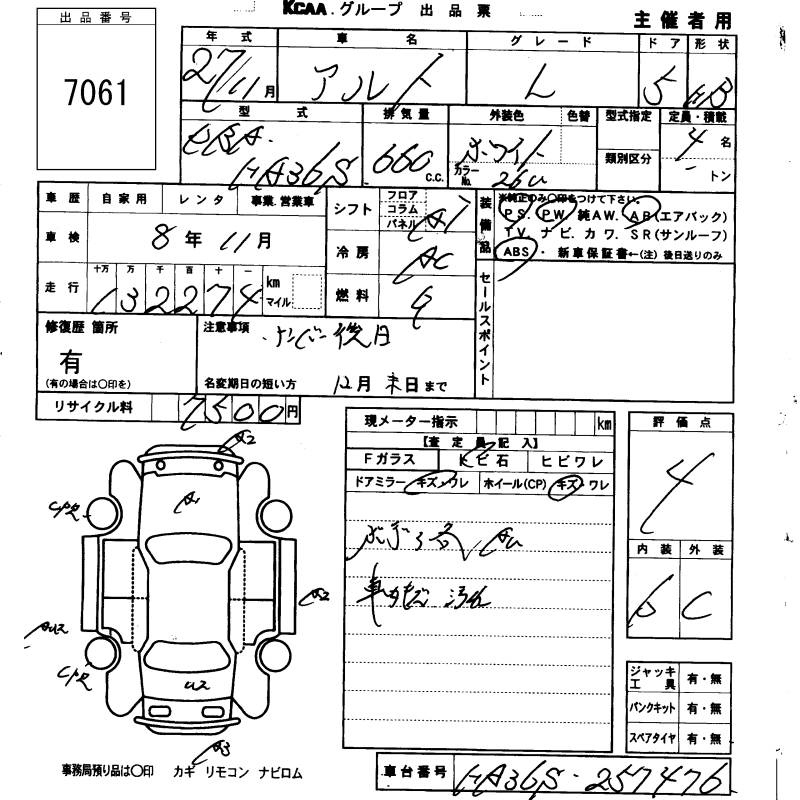 KCAA.グループ 出品票
主催者用
出品番号
7061
年式 車名 グレード ドア 形状
27/11月 アルト L 5 HB
型式 排気量 外装色 色替 型式指定 定員・積載
DBA-HA36S 660c.c. ホワイト 類別区分 4名
カラーNo. 26U トン
車歴 自家用 レンタ 事業.営業車
車検 8年11月
走行 十万 万 千 百 十 一
132274 km マイル
シフト フロア コラム パネル AT
冷房 AC
燃料 G
装備品
※純正のみ〇印をつけて下さい。
PS. PW. 純AW. AB(エアバック)
TV. ナビ. カワ. SR(サンルーフ)
ABS・ 新車保証書←(注)後日送りのみ
セールスポイント
修復歴 箇所
有
(有の場合は〇印を)
注意事項
ナンバー後日
名変期日の短い方 12月末日まで
リサイクル料 7500円
現メーター指示 km
【査定員記入】
Fガラス トビ石 ヒビワレ
ドアミラー キズ・ワレ ホイール(CP) キズ・ワレ
車内 汚れ
評価点
4
内装 外装
C
ジャッキ工具 有・無
パンクキット 有・無
スペアタイヤ 有・無
A2
A1
A2
U2
A3
事務局預り品は〇印 カギ リモコン ナビロム
車台番号 HA36S-257476